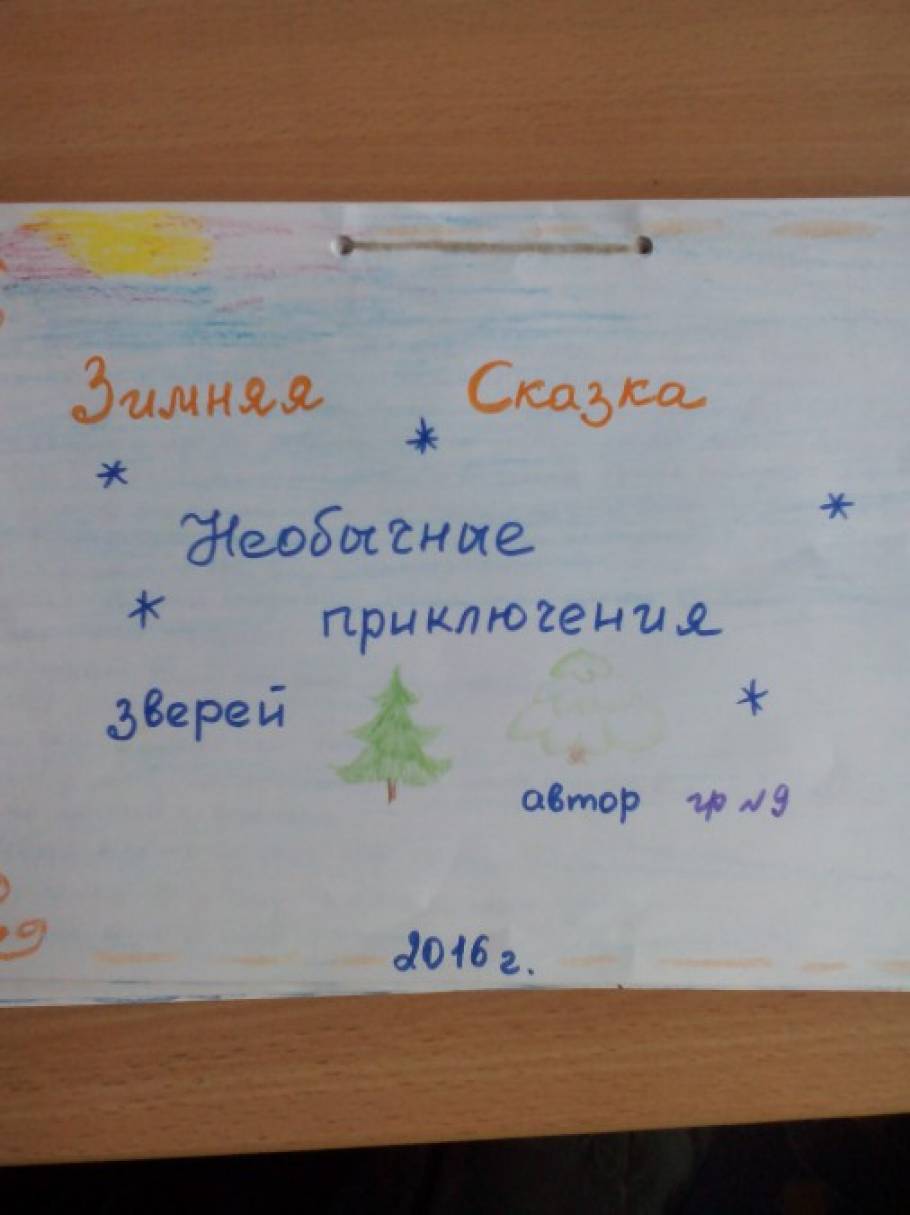 Зимняя Сказка
Необычные
приключения
зверей
автор гр №9
2016 г.